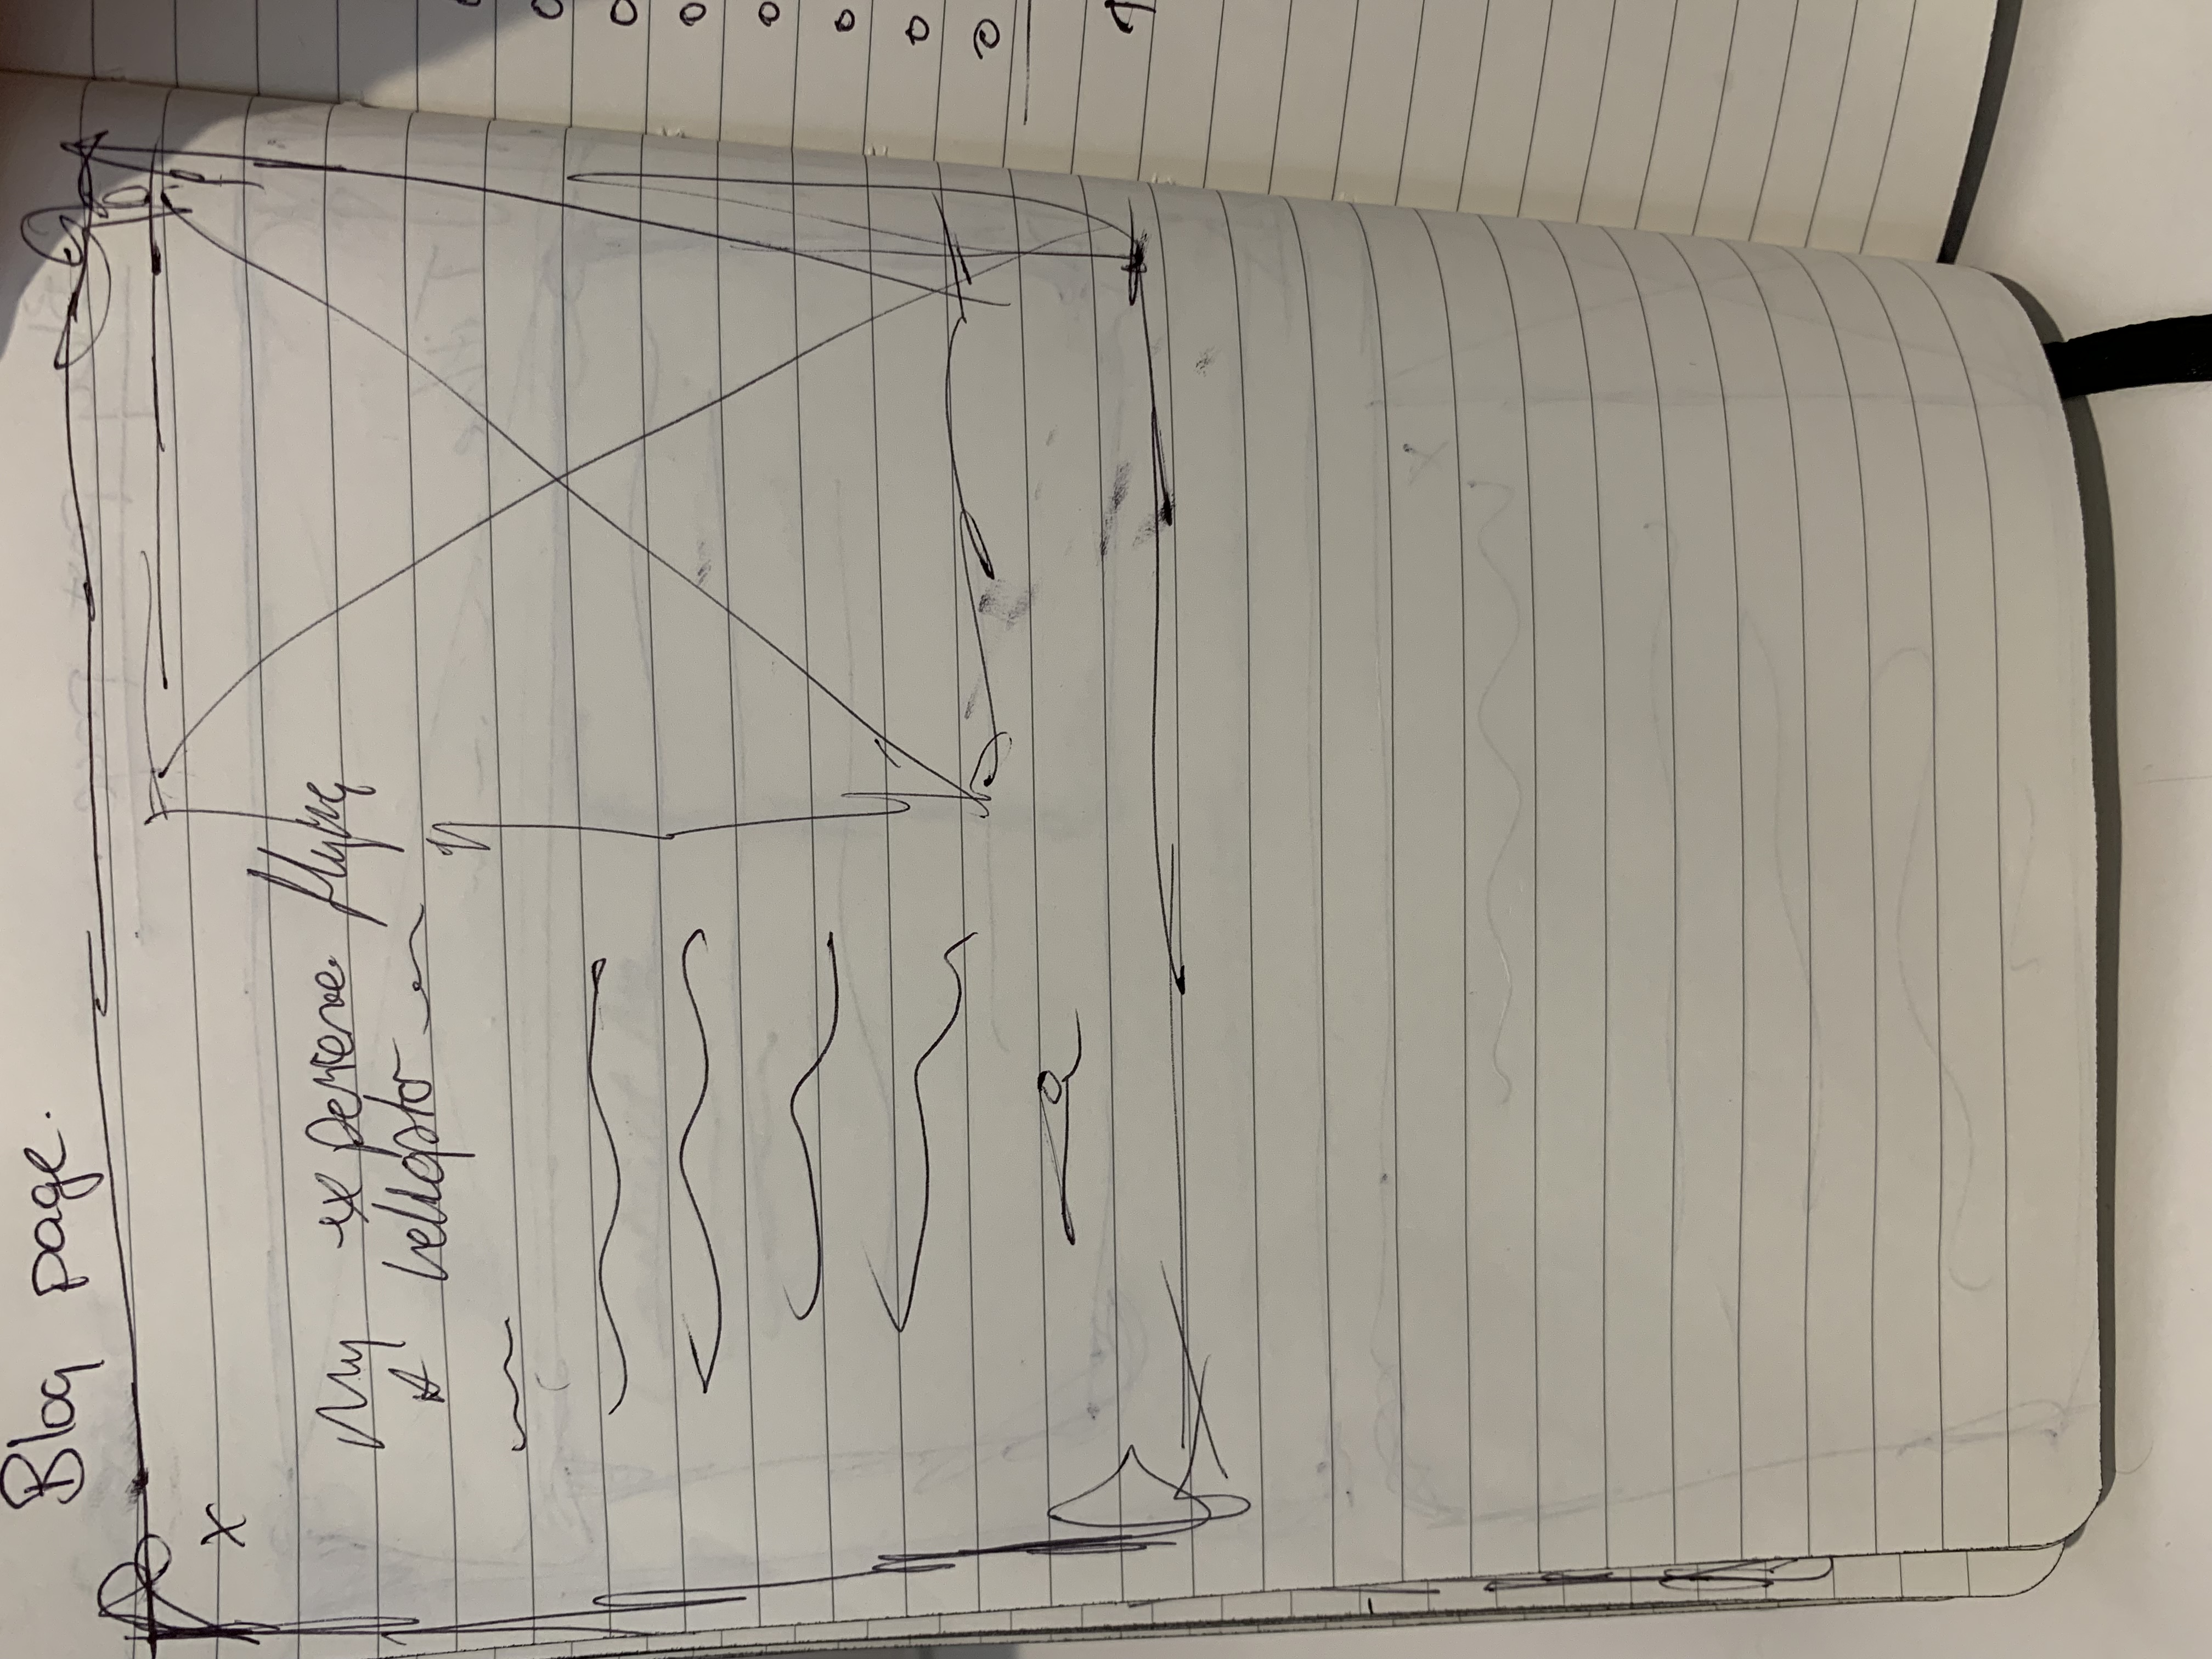 Blog page.
x
My experience flying
A helicoptor